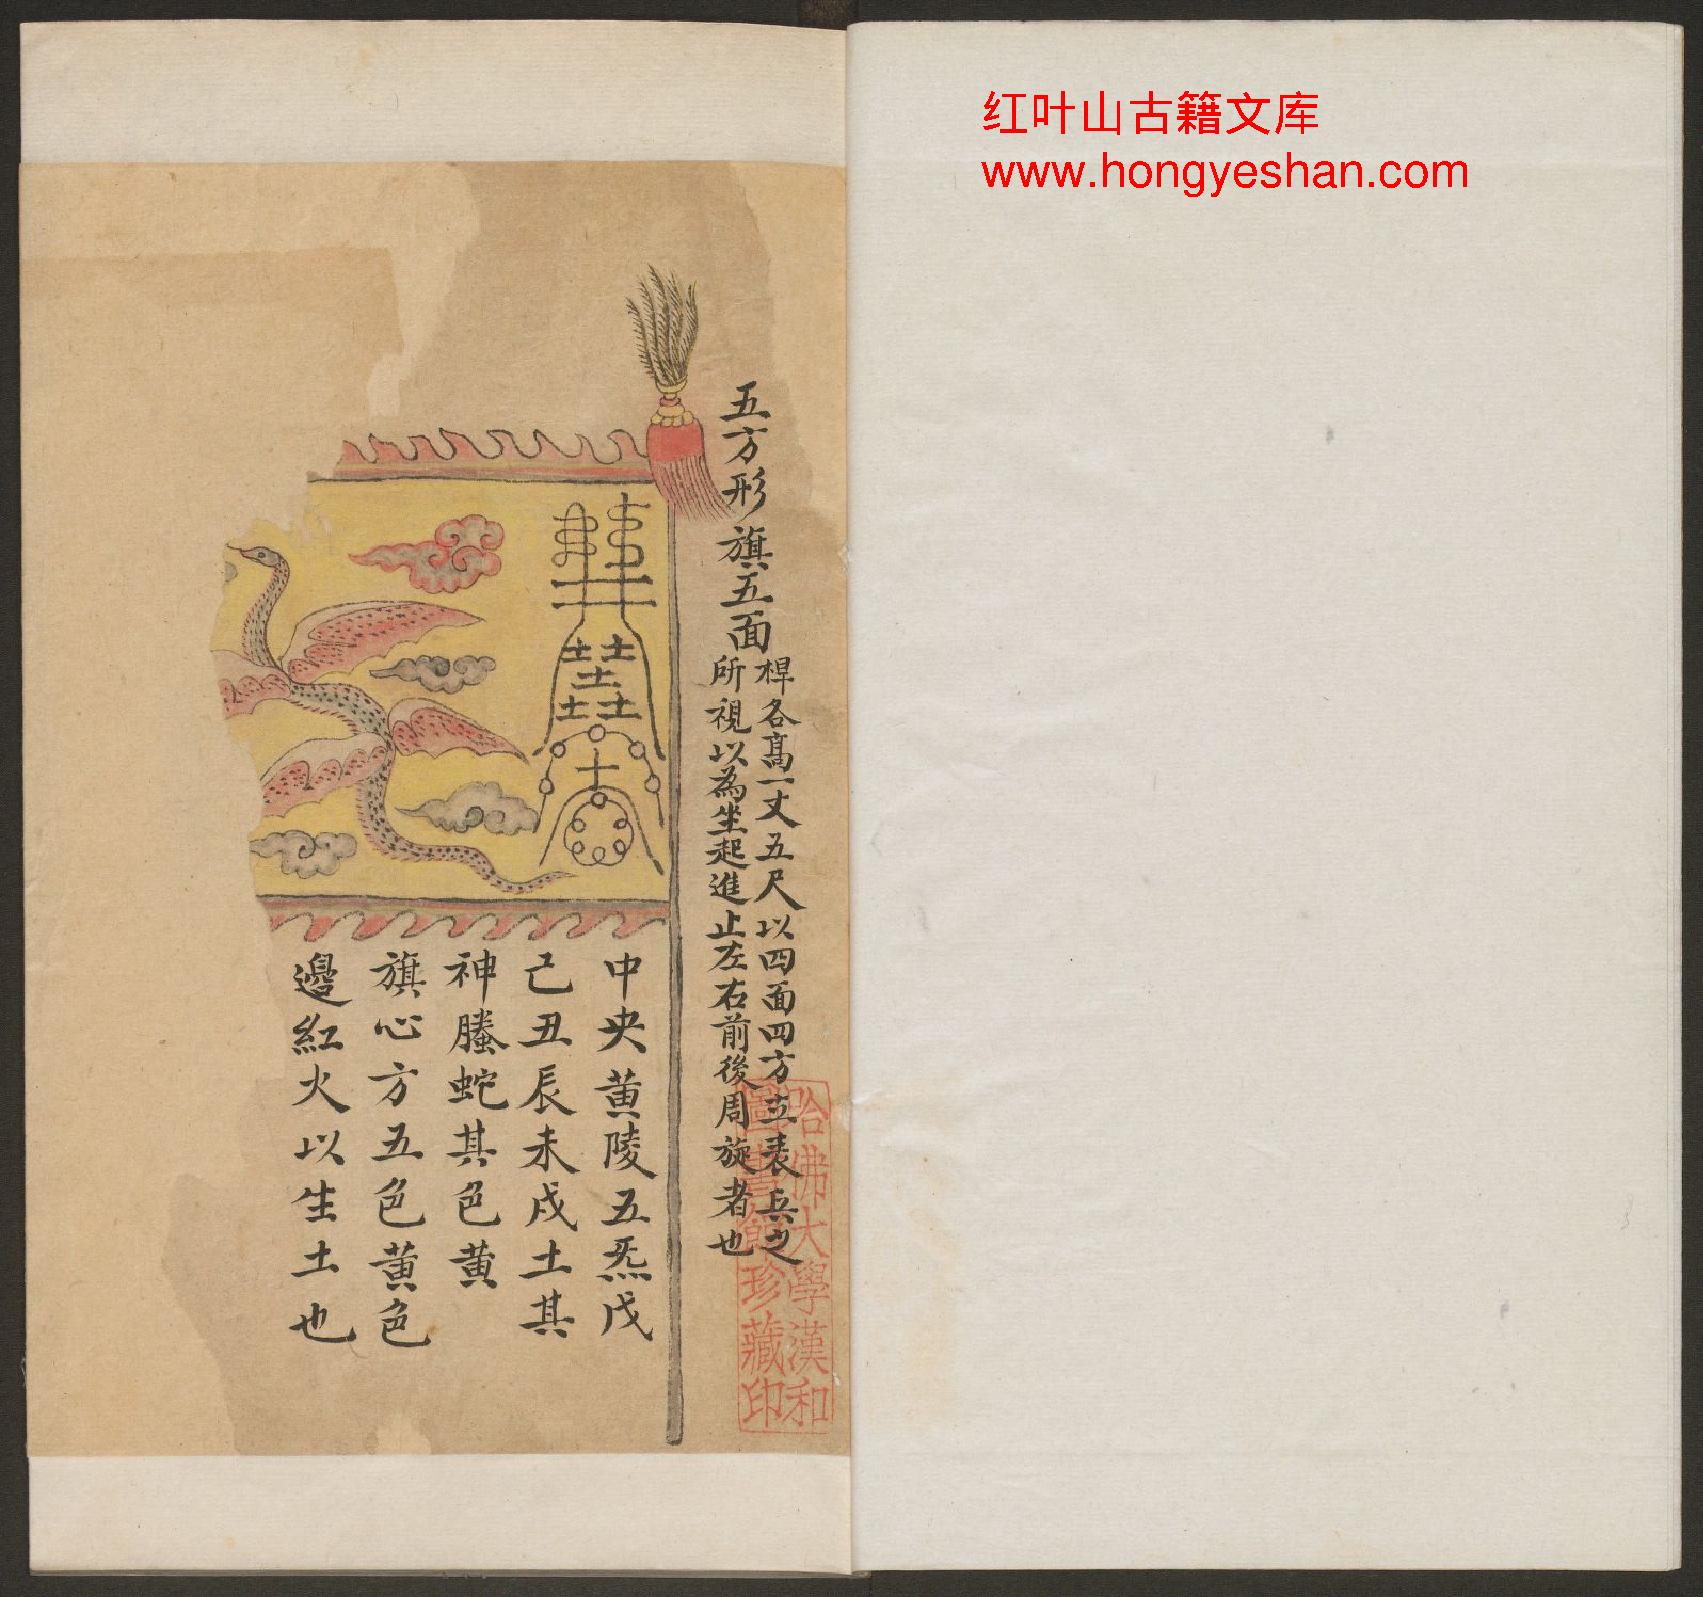 红叶山古籍文库
www.hongyeshan.com
五方形旗五面
桿各髙一丈五尺以四面四方立表兵之
所視以為坐起進止左右前後周旋者也
哈佛大學漢和
圖書館珍藏印
中央黄陵五炁戊
己丑辰未戌土其
神螣蛇其色黄
旗心方五色黄色
邊紅火以生土也
土土
土
土土